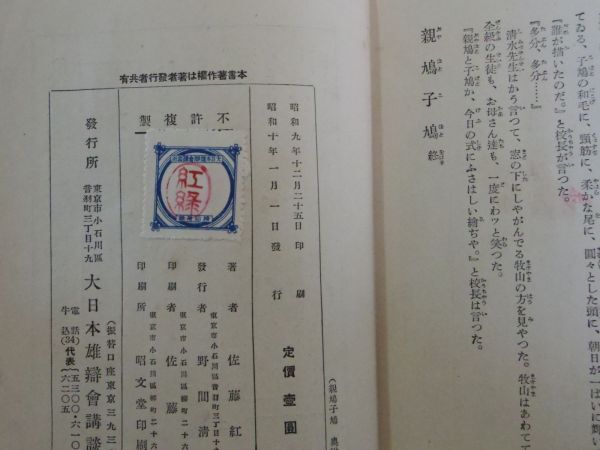 てゐる、子鳩の和毛に、頸筋に、柔かな尾に、圓々とした頭に、朝日が一ぱいに輝い
『誰が描いたのだ。』と校長が言つた。
『多分、多分……』
清水先生はかう言つて、窓の下にしやがんでる牧山の方を見やつた。牧山はあわてて
全級の生徒も、お母さん達も、一度にわツと笑つた。
『親鳩と子鳩か、今日の式にふさはしい繪ぢや。』と校長は言つた。
親鳩子鳩 終
(親鳩子鳩 奥
本書著作權は著者發行者共有
昭和九年十二月二十五日印刷
昭和十年一月一日發行
定價壹圓
不許複製
大日本雄辯會講談社
紅綠
著者 佐藤紅
東京市小石川區音羽町三丁目十
發行者 野間清
東京市小石川區柳町二十六
印刷者 佐藤
東京市小石川區柳町二十六
印刷所 昭文堂印刷
發行所 東京市小石川區音羽町三丁目十九 大日本雄辯會講談
(振替口座東京三九三
電話牛込(34)代表 五三〇〇・六一〇
六二〇五